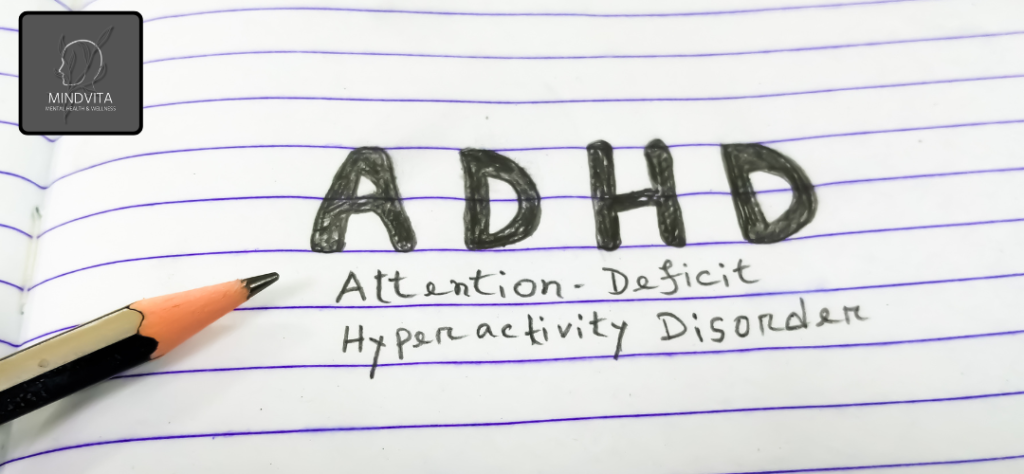 MINDVITA
MENTAL HEALTH & WELLNESS
ADHD
Attention-Deficit
Hyperactivity Disorder